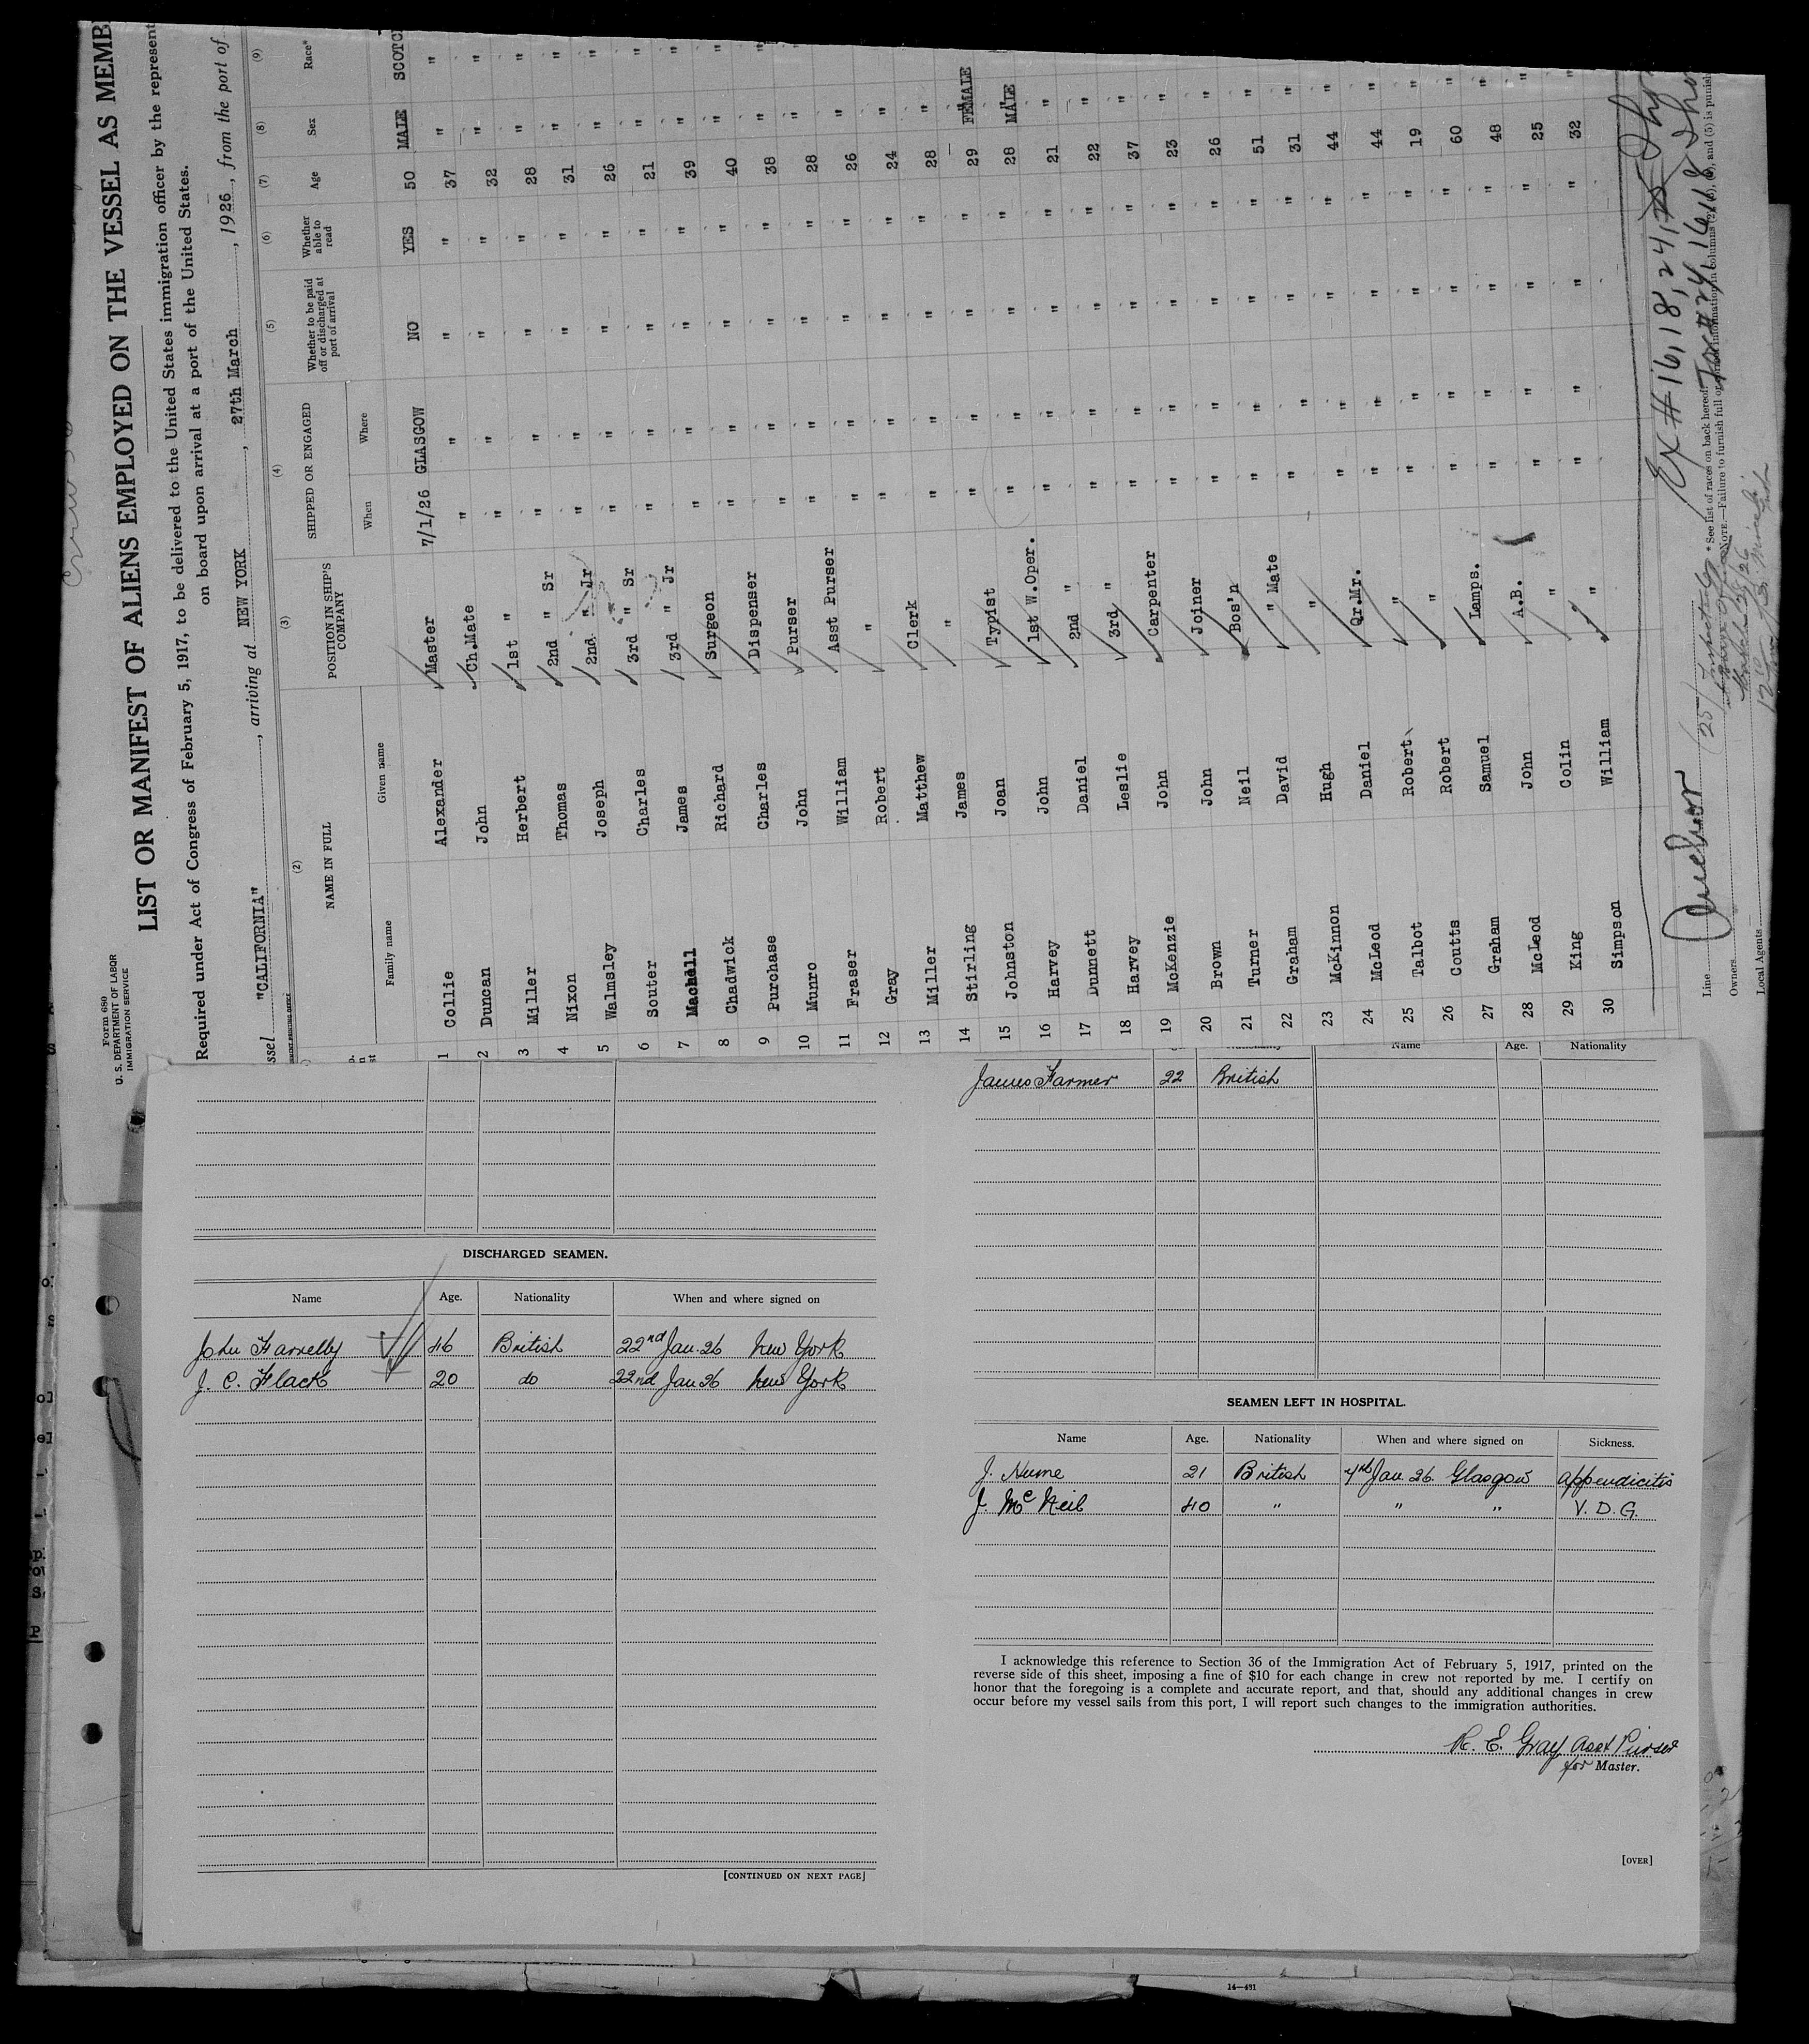 Form 680
U. S. DEPARTMENT OF LABOR
IMMIGRATION SERVICE
LIST OR MANIFEST OF ALIENS EMPLOYED ON THE VESSEL AS MEMB
Required under Act of Congress of February 5, 1917, to be delivered to the United States immigration officer by the represent
on board upon arrival at a port of the United States.
ssel "CALIFORNIA", arriving at NEW YORK, 27th March, 1926, from the port of
(2) (3) (4) (5) (6) (7) (8) (9)
NAME IN FULL POSITION IN SHIP'S COMPANY SHIPPED OR ENGAGED Whether to be paid off or discharged at port of arrival Whether able to read Age Sex Race*
Family name Given name When Where
1 Collie Alexander Master 7/1/26 GLASGOW NO YES 50 MALE SCOTC
2 Duncan John Ch.Mate " " " " 37 " "
3 Miller Herbert 1st " " " " " 32 " "
4 Nixon Thomas 2nd " Sr " " " " 28 " "
5 Walmsley Joseph 2nd " Jr " " " " 31 " "
6 Souter Charles 3rd " Sr " " " " 26 " "
7 Machell James 3rd " Jr " " " " 21 " "
8 Chadwick Richard Surgeon " " " " 39 " "
9 Purchase Charles Dispenser " " " " 40 " "
10 Munro John Purser " " " " 38 " "
11 Fraser William Asst Purser " " " " 28 " "
12 Gray Robert " " " " " 26 " "
13 Miller Matthew Clerk " " " " 24 " "
14 Stirling James " " " " " 28 " "
15 Johnston Joan Typist " " " " 29 FEMALE "
16 Harvey John 1st W.Oper. " " " " 28 MALE "
17 Dunnett Daniel 2nd " " " " " 21 " "
18 Harvey Leslie 3rd " " " " " 22 " "
19 McKenzie John Carpenter " " " " 37 " "
20 Brown John Joiner " " " " 23 " "
21 Turner Neil Bos'n " " " " 26 " "
22 Graham David " Mate " " " " 51 " "
23 McKinnon Hugh " " " " " 31 " "
24 McLeod Daniel Qr.Mr. " " " " 44 " "
25 Talbot Robert " " " " " 44 " "
26 Coutts Robert " " " " " 19 " "
27 Graham Samuel Lamps. " " " " 60 " "
28 McLeod John A.B. " " " " 48 " "
29 King Colin " " " " " 25 " "
30 Simpson William " " " " " 32 " "
Ex # 16, 18, 24,
Line Anchor (25)
* See list of races on back hereof.
Owners
NOTE.—Failure to furnish full or
information in columns
and (5) is punish
Local Agents
James Farmer 22 British
Name Age. Nationality
DISCHARGED SEAMEN.
Name Age. Nationality When and where signed on
John Farrelly 46 British 22nd Jan. 26 New York
J. C. Flack 20 do 22nd Jan 26 New York
[CONTINUED ON NEXT PAGE]
SEAMEN LEFT IN HOSPITAL.
Name Age. Nationality When and where signed on Sickness.
J. Hume 21 British 7th Jan. 26. Glasgow appendicitis
J. McNeil 40 " " " V. D. G.
I acknowledge this reference to Section 36 of the Immigration Act of February 5, 1917, printed on the
reverse side of this sheet, imposing a fine of $10 for each change in crew not reported by me. I certify on
honor that the foregoing is a complete and accurate report, and that, should any additional changes in crew
occur before my vessel sails from this port, I will report such changes to the immigration authorities.
R. E. Gray Asst Purser
for Master.
[OVER]
14—431